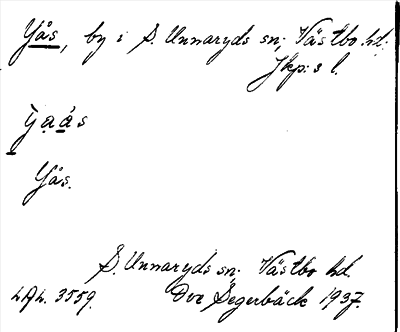 Yås, by i S. Unnaryds sn, Västbo hd.
Jkp:s l.
Yås.
S. Unnaryds sn. Västbo hd.
LAL. 3559. Ove Segerbäck 1937.